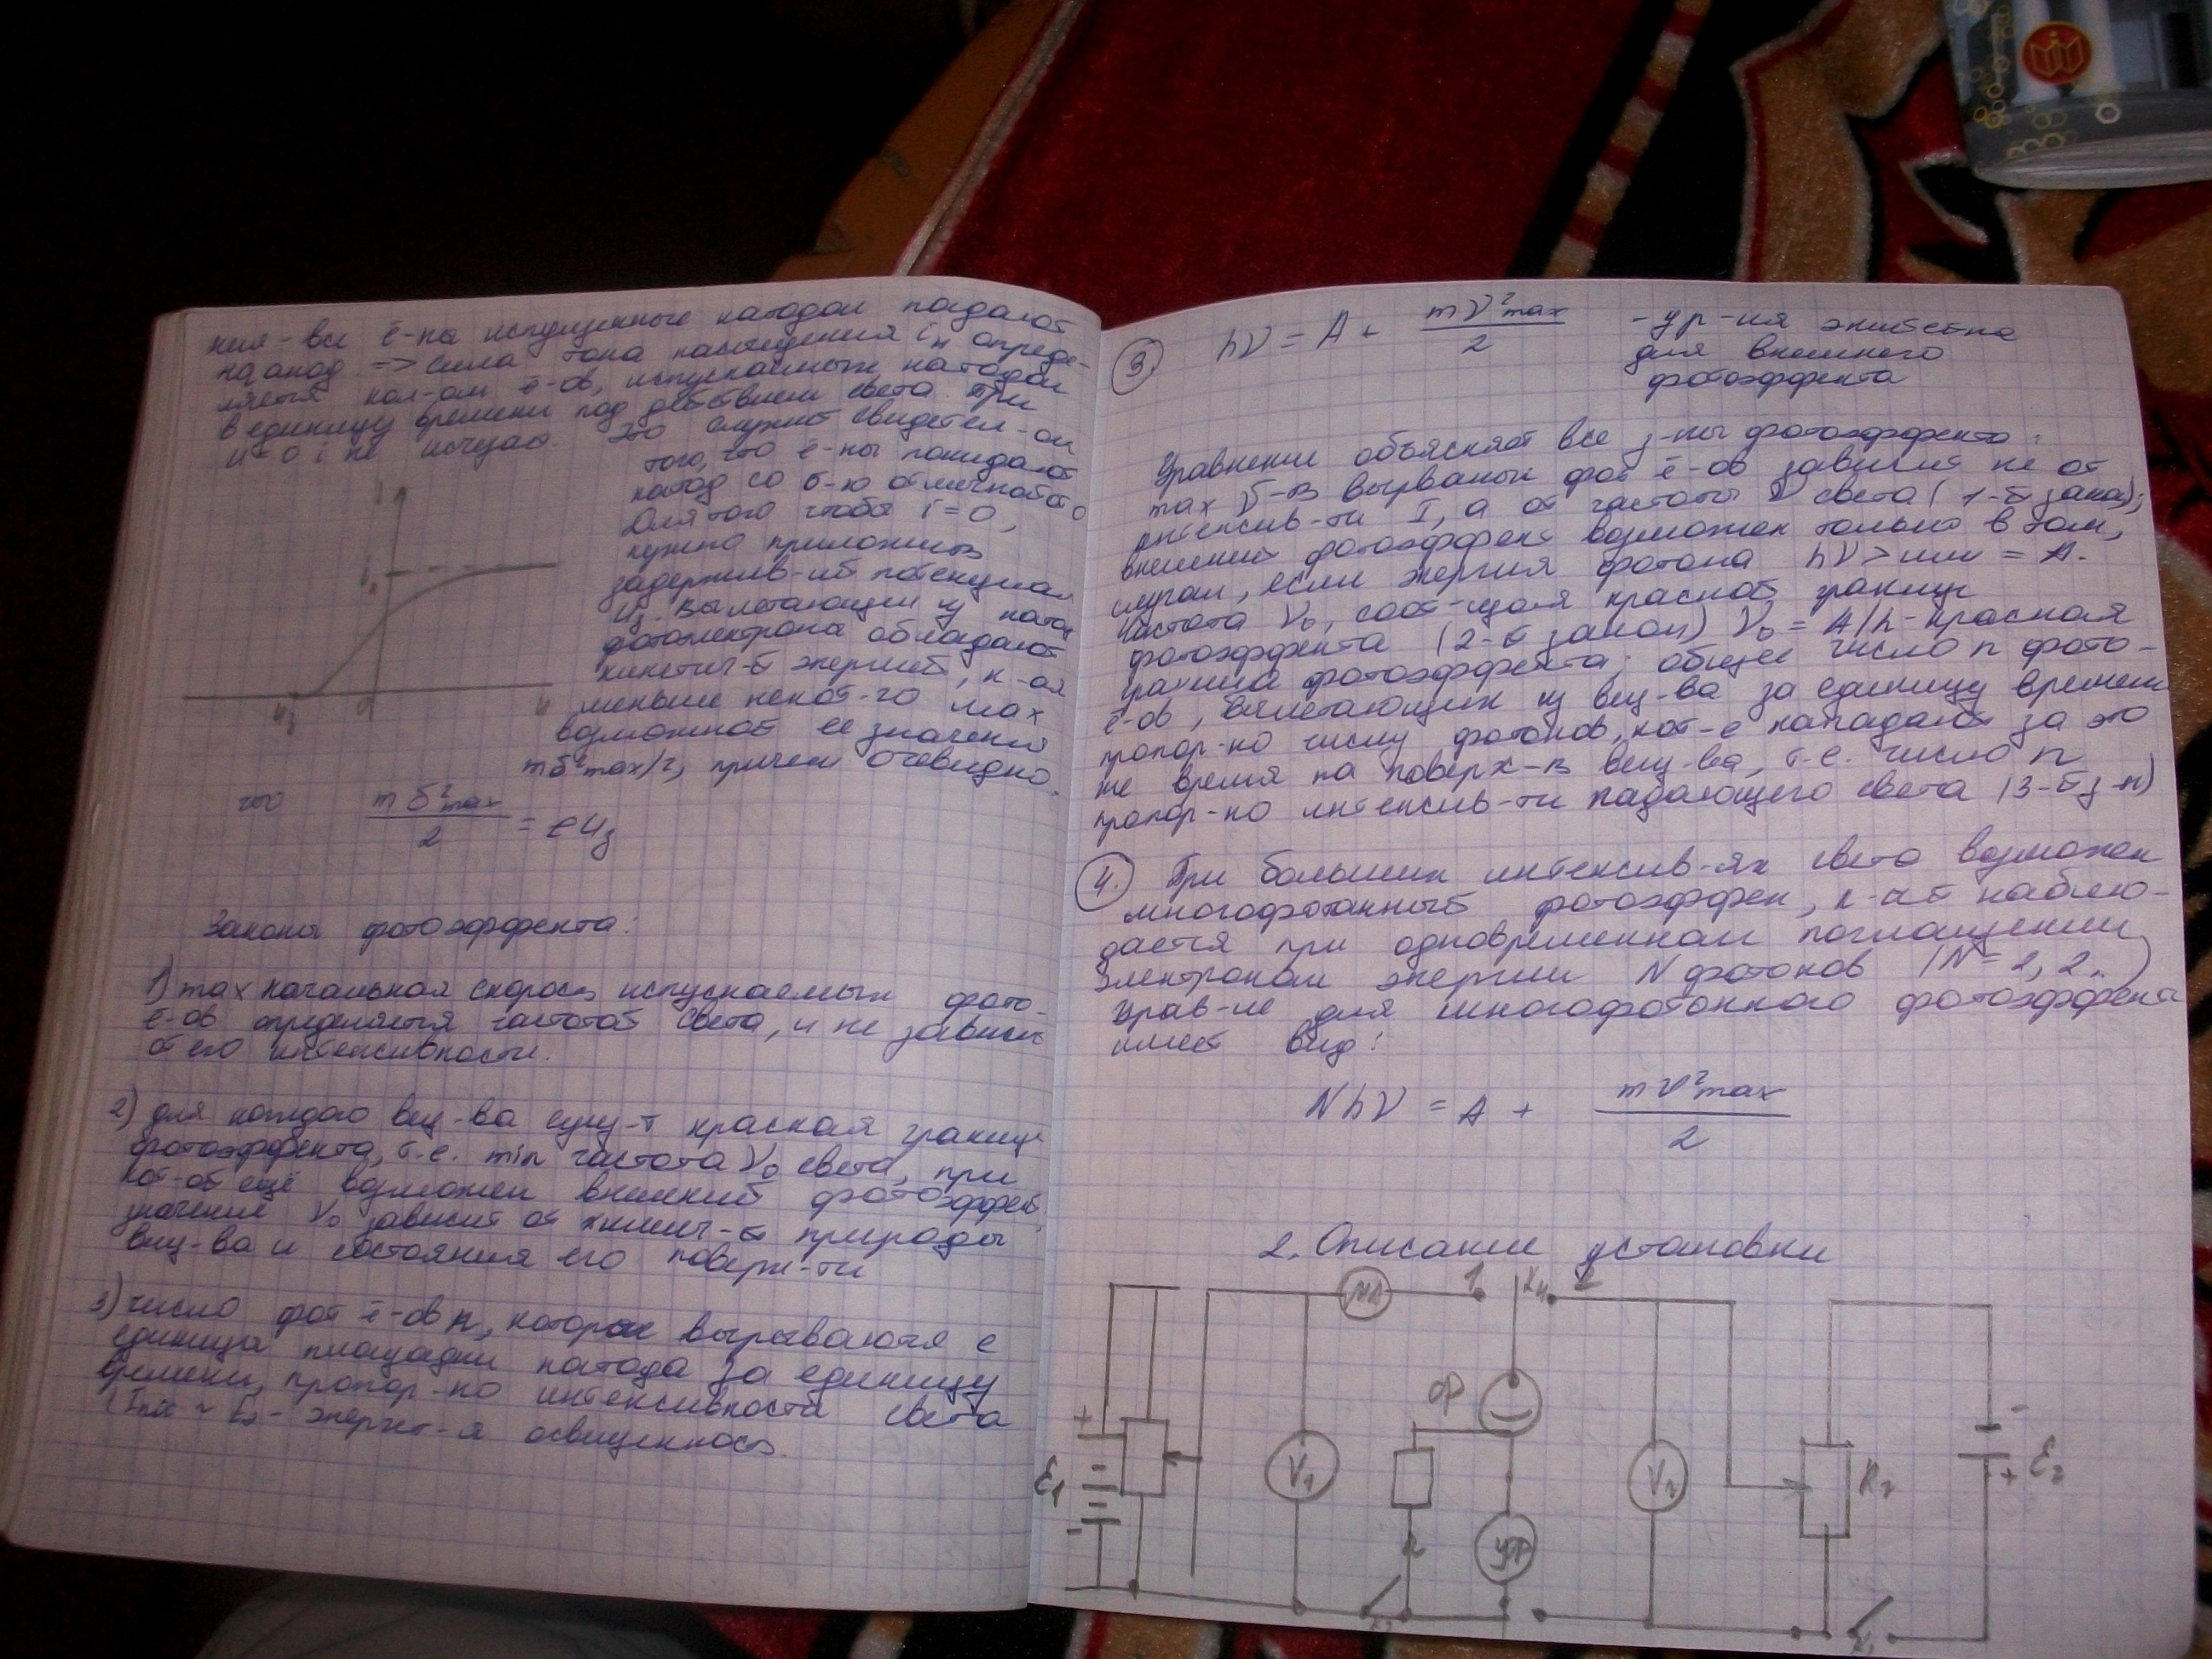 ния - все ē-на испущенные катодом попадают
на анод => сила тока насыщения iн опреде-
ляется кол-ом ē-ов, испускаемых катодом
в единицу времени под действием света. При
u=0 i не исчезает. Это служит свидетел-ом
того, что ē-ны покидают
катод со б-ю отличной от 0
Для того чтобы i=0,
нужно приложить
задержив-ий потенциал
Uз. Вылетающие из катод
фотоэлектрона обладают
кинетич-й энергией, к-ая
меньше некот-го max
возможной ее значения
mб²max/2, причем очевидно,
что mб²max/2 = eUз
i
iн
Uз 0 u
Законы фотоэффекта:
1) max начальная скорость испускаемых фото-
ē-ов определяется частотой света, и не зависит
от его интенсивности.
2) для каждого вещ-ва сущ-т красная границ
фотоэффекта, т.е. min частота ν₀ света, при
кот-ой ещё возможен внешний фотоэффект
значение ν₀ зависит от химич-й природы
вещ-ва и состояния его поверх-ти
3) число фот ē-ов n, которые вырываются с
единица площади катода за единицу
времени, пропор-но интенсивности света
- энергет-я освещенность.
3. hν = A + mV²max/2 - ур-ия энштейна
для внешнего
фотоэффекта
Уравнение объясняет все з-ны фотоэффекта:
max V-ть вырваных фот ē-ов зависит не от
интенсив-ти I, а от частоты ν света (1-й закон);
внешний фотоэффект возможен только в том,
случаи, если энергия фотона hν > или = A.
Частота ν₀, соот-щая красной границы
фотоэффекта (2-й закон) ν₀ = A/h - красная
граница фотоэффекта; общее число n фото-
ē-ов, вылетающих из вещ-ва за единицу времени
пропор-но числу фотонов, кот-е попадают за это
же время на поверх-ть вещ-ва, т.е. число n
пропор-но интенсив-ти падающего света (3-й з-н)
4. При больших интенсив-ях света возможен
многофотонный фотоэффек, к-ый наблю-
дается при одновременном поглащении
электроном энергии N фотонов (N = 2, 2..)
Урав-ие для многофотонного фотоэффекта
имеет вид:
NhV = A + mV²max/2
2. Описание установки
мА 1 2
+ ФР -
Ɛ1 V1 V2 R2 Ɛ2
- R +